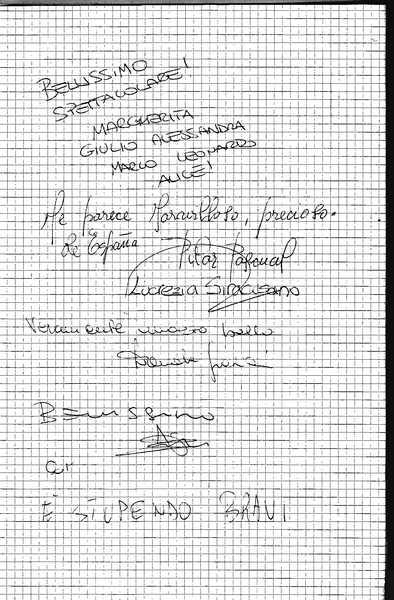 BELLISSIMO
SPETTACOLARE!
MARGHERITA
GIULIO ALESSANDRA
MARCO LEONARDO
ALICE!
Me parece Maravilloso, precioso.
De España Pilar Pascual
Lucrezia Siracusano
Veramente molto bello
BELLISSIMO
È STUPENDO BRAVI